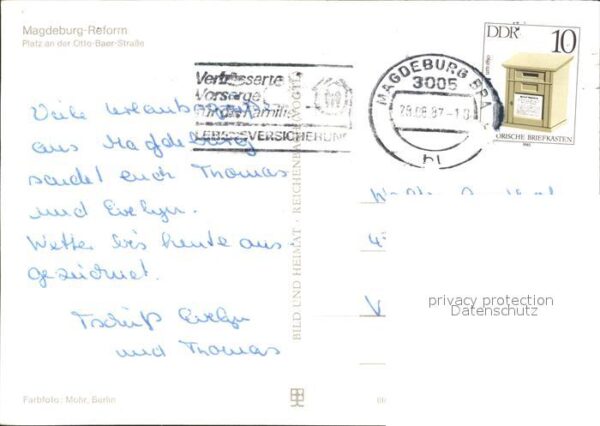 Magdeburg-Reform
Platz an der Otto-Baer-Straße
DDR 10
HISTORISCHE BRIEFKASTEN
1985
MAGDEBURG BPA
3005
29.08.87-1
bl
Verbesserte
Vorsorge
für die Familie
LEBENSVERSICHERUNG
Viele Urlaubsgrüße
aus Magdeburg
sendet euch Thomas
und Evelyn.
Wetter bis heute aus-
gezeichnet.
Tschüß Evelyn
und Thomas
BILD UND HEIMAT · REICHENBACH (VOGTL)
V
privacy protection
Datenschutz
Farbfoto: Mohr, Berlin